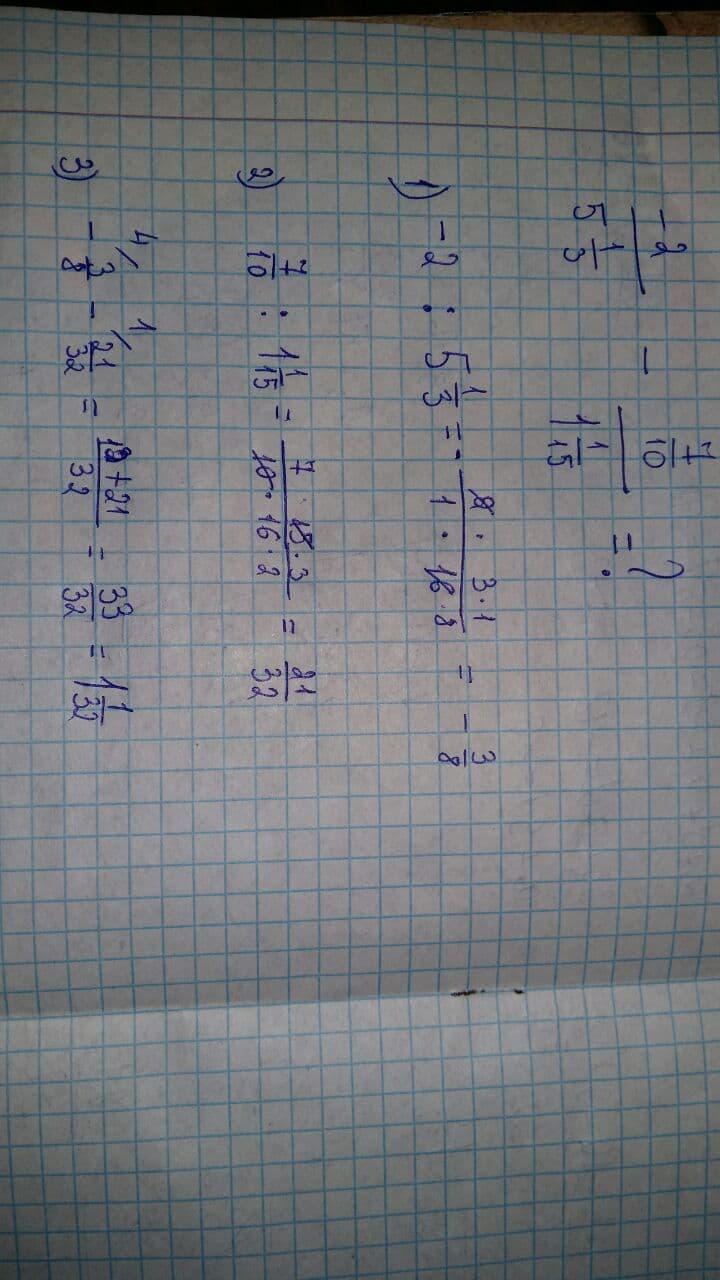 -2/(5 1/3) - (7/10)/(1 1/15) = ?
1) -2 : 5 1/3 = -(2 · 3 · 1)/(1 · 16 · 8) = - 3/8
2) 7/10 : 1 1/15 = (7 · 15 · 3)/(10 · 16 · 2) = 21/32
3) - 3/8 4/ - 21/32 1/ = (12+21)/32 = 33/32 = 1 1/32